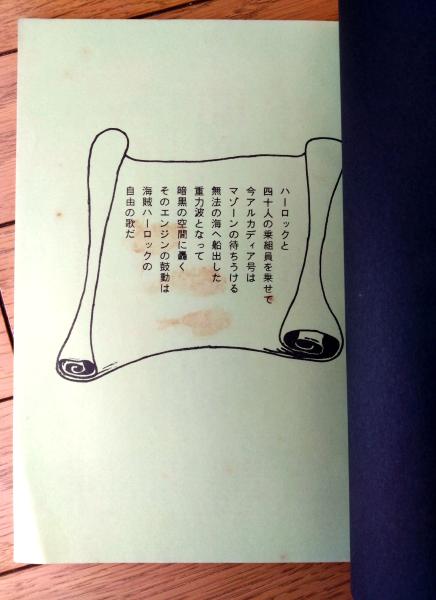 ハーロックと
四十人の乗組員を乗せて
今アルカディア号は
マゾーンの待ちうける
無法の海へ船出した
重力波となって
暗黒の空間に轟く
そのエンジンの鼓動は
海賊ハーロックの
自由の歌だ